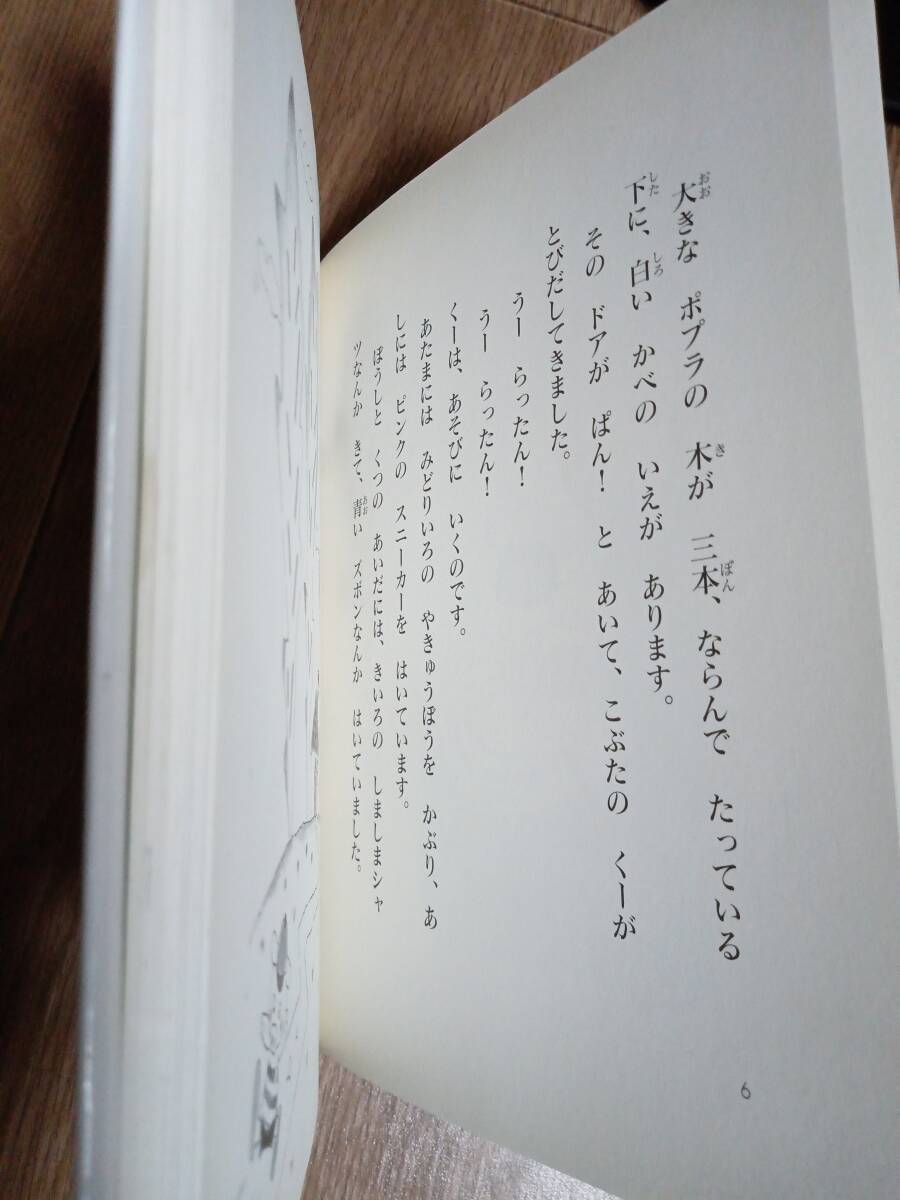 大きな ポプラの 木が 三本、ならんで たっている
下に、白い かべの いえが あります。
その ドアが ぱん! と あいて、こぶたの くーが
とびだしてきました。
うー らったん!
うー らったん!
くーは、あそびに いくのです。
あたまには みどりいろの やきゅうぼうを かぶり、あ
しには ピンクの スニーカーを はいています。
ぼうしと くつの あいだには、きいろの しましまシャ
ツなんか きて、青い ズボンなんか はいていました。
6